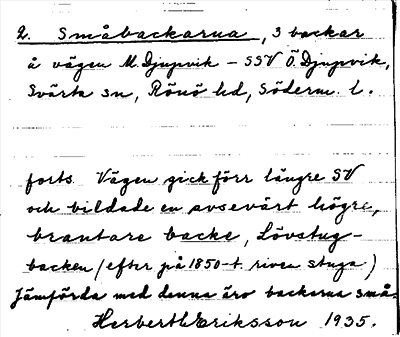 2. Småbackarna, 3 backar
å vägen M. Djupvik - SSV Ö. Djupvik,
Svärta sn, Rönö hd, Söderm. l.
forts. Vägen gick förr längre SV
och bildade en avsevärt högre,
brantare backe, Lövstug-
backen (efter på 1850-t. riven stuga)
Jämförda med denna äro backarna små.
Herbert Eriksson 1935.